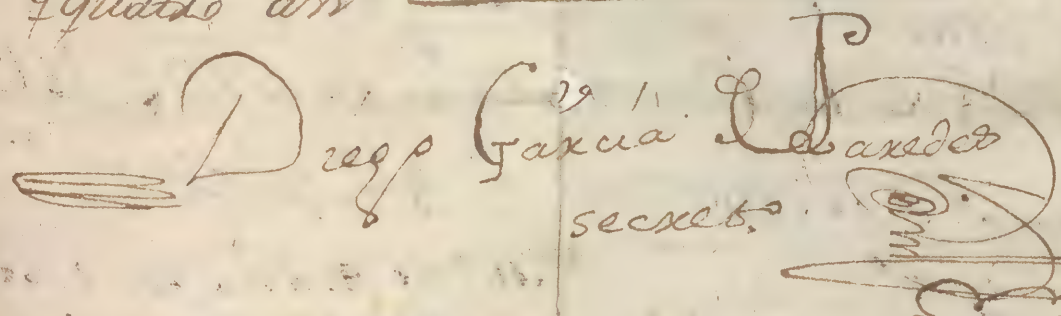 yquatro an
Diego García Paredes
secret.º